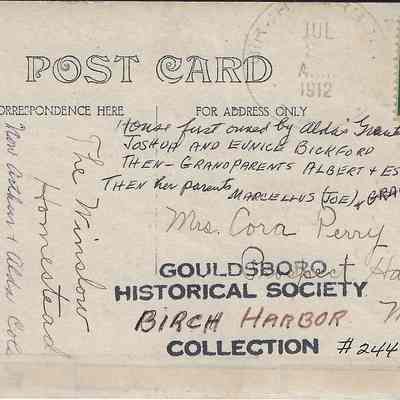 POST CARD
JUL
A
1912
CORRESPONDENCE HERE
FOR ADDRESS ONLY
House first owned by Alda's Grant
JOSHUA AND EUNICE BICKFORD
THEN - GRANDPARENTS ALBERT + ES
THEN her parents MARCELLUS (JOE) + GRA
Mrs. Cora Perry
Prospect Ha
M
The Winslow
Homestead
Now Arthur + Alda Cole
GOULDSBORO
HISTORICAL SOCIETY
BIRCH HARBOR
COLLECTION # 244